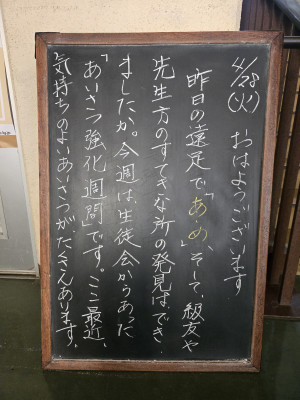 4/28(火) おはようございます
昨日の遠足で「あ・め」、そして、級友や
先生方のすてきな所の発見はでき
ましたか。今週は、生徒会からあった
「あいさつ強化週間」です。ここ最近、
気持ちのよいあいさつがたくさんあります。